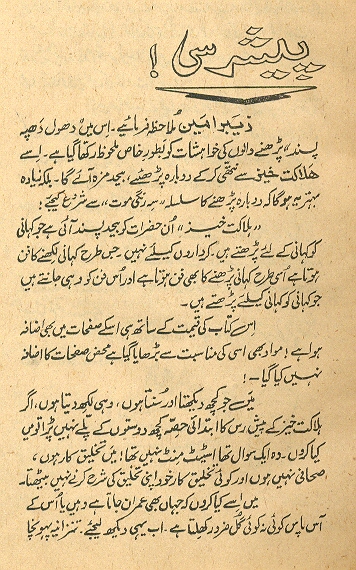 پیشرسی !
زبیرا مین ملاحظہ فرمائیے۔ اس میں دھول دھپہ
پسند" پڑھنے والوں کی خواہشات کو بطورِ خاص ملحوظ رکھا گیا ہے۔ اسے
ھلاکت خیز سے نتھی کر کے دوبارہ پڑھئے، بیحد مزہ آئے گا۔ بلکہ زیادہ
بہتر یہ ہوگا کہ دوبارہ پڑھنے کا سلسلہ "سہ رنگی موت" سے شروع کیجئے!
"ہلاکت خیز" اُن حضرات کو بیحد پسند آئی ہے جو کہانی
کو کہانی کے لئے پڑھتے ہیں۔ کرداروں کیلئے نہیں۔ جس طرح کہانی لکھنے کا فن
ہوتا ہے اُسی طرح کہانی پڑھنے کا بھی فن ہوتا ہے اور اُس فن کو وہی جانتے ہیں
جو کہانی کو کہانی کیلئے پڑھتے ہیں۔
اس کتاب کی قیمت کے ساتھ ہی اسکے صفحات میں بھی اضافہ
ہوا ہے! مواد بھی اسی کی مناسبت سے بڑھایا گیا ہے محض صفحات کا اضافہ
نہیں کیا گیا۔!
میں جو کچھ دیکھتا اور سُنتا ہوں، وہی لکھ دیتا ہوں، اگر
ہلاکت خیز کے پیش رس کا ابتدائی حصّہ کچھ دوستوں کے پلے نہیں پڑا تو میں
کیا کروں۔ وہ ایک سوال تھا اسٹیٹ منٹ نہیں تھا! میں تخلیق کار ہوں،
صحافی نہیں ہوں اور کوئی تخلیق کار خود اپنی تخلیق کی شرح کرنے نہیں بیٹھتا۔
میں اسے کیا کروں کہ جہاں بھی عمران جاتا ہے وہیں یا اُس کے
آس پاس کوئی نہ کوئی گُل ضرور کھلتا ہے۔ اب یہی دیکھ لیجئے۔ تنزانیہ پہونچا